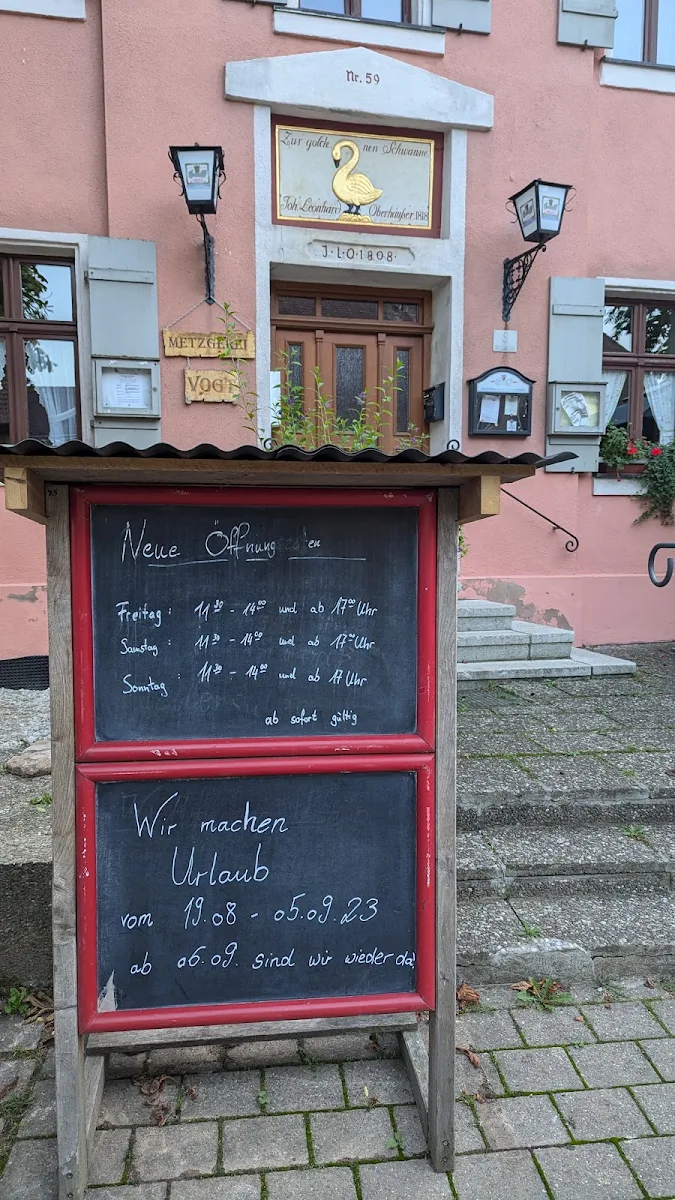 Nr. 59
Zur golde nen Schwanne
Joh. Leonhard Oberhäußer. 1818
J·L·O·1808·
METZGEREI
VOGT
Neue Öffnung en
Freitag : 11³⁰ - 14⁰⁰ und ab 17⁰⁰ Uhr
Samstag : 11³⁰ - 14⁰⁰ und ab 17⁰⁰ Uhr
Sonntag : 11³⁰ - 14⁰⁰ und ab 17 Uhr
ab sofort gültig
Wir machen
Urlaub
vom 19.08 - 05.09.23
ab 06.09. sind wir wieder da!